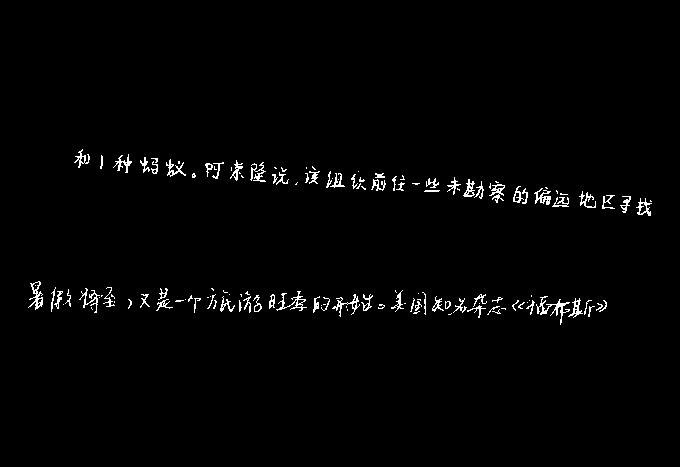 和1种蚂蚁。阿索隆说,该组织前往一些未勘察的偏远地区寻找
暑假将至,又是一个旅游旺季的开始。美国知名杂志《福布斯》